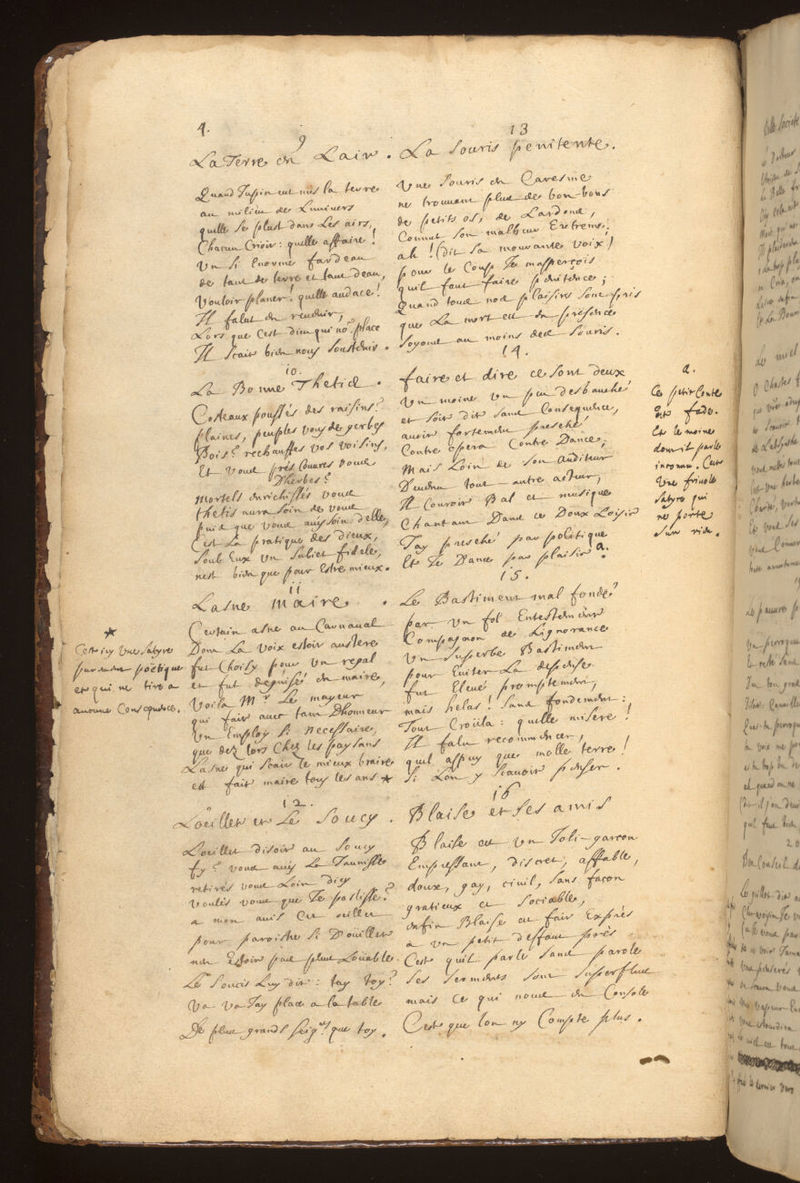 4.
9
La Terre en Lair.
Quand Jupin eut mis la terre
au milieu de Lunivers
quelle se plust dans Les airs,
Chacun Crioit: quelle affaire!
Un si Enorme fardeau
de tant de terre et tant deau,
Vouloir planer! quelle audace!
Il falut en reuenir,
Lors que Cest dieu qui no9 place
Il scait bien nous soustenir.
10.
La Bonne Thetis.
Costeaux poussés des raisins?
plaines, peuples vous de gerbes
Bois? rechauffes vos voisins,
Et Vous prés Couvres vous
Dherbes?
Mortels enrichissés vous
thetis aura soin de vous
puis que vous auys soin delle,
Cest La pratique des dieux,
Sous Eux un suliet fidele,
nest bien que pour Estre mieux.
11
Lasne Maire.
Certain asne au Carnaual
Dont La voix estoit austere
fut Choisy pour un regal
et fut deguisé en maire,
Voila Mr Le mayeur
qui fait auec tant Dhonneur
Un Employ si necessaire,
que dez lors Chez les paysans
Lasne qui scait le mieux braire
est fait maire tous les ans *
*
Cest icy Une satyre
purement poëtique
et qui ne tire a
aucune Consequence.
12.
Loeillet et Le Soucy.
Loeillet disoit au soucy
fy? vous auys La Jaunisse
retirés vous Loin dicy
voulés vous que Je palisse?
a mon auis Cet oeillet
pour paroistre si Douillet
nen Estoit pas plus Louable.
Le soucis Luy dit: tay toy?
Va Va Jay place a la table
De plus grands seigrs que toy.
13
La Souris penitente.
Une Souris en Caresme
ne trouuant plus de bon-bons
de petits os, de Lardons,
Connut son malheur Extreme:
ah! (dit sa mourante voix)
pour le Coup Je mapperçois
quil faut faire penitence;
Quand tous nos plaisirs sont pris
que La mort est en presence
Soyons au moins des Souris.
14.
faire et dire ce sont deux
Un moine un peu desbauché
et soit dit sans Consequence,
auoit fortement presché
Contre opera Contre Dance,
Mais Loin de son auditeur
Deuenu tout autre acteur,
Il Couroit Bal et musique
Chantant Dans ce Doux Loisir
Jay presché par politique
Et Je Danse par plaisir a.
a.
Ce petit Conte
est fade.
Et le moine
dont il parle
inconnu. Cest
Une friuole
satyre qui
ne porte
sur rien.
15.
Le Bastiment mal fondé
par un fol Entestement
Compagnon de Lignorance
Un superbe Bastiment
pour Euiter La despense
fut Eleué promptement,
mais helas! sans fondement:
Tout Croûla: quelle misere!
Il falu recommencer,
quel appuy que molle terre!
si Lon y scauoit penser.
16
Blaise et ses amis
Blaise est un Joli-garcon
Empressant, discret, affable,
doux, gay, ciuil, sans façon
gratieux et sociable,
enfin Blaise est fait Exprés
a un petit deffaut prés
Cest quil parle sans parole
ses serments sont superflus
mais Ce qui nous en Console
Cest que lon ny Compte plus.